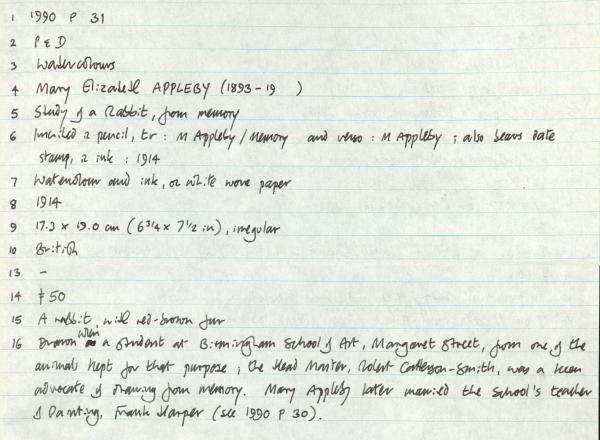 1 1990 P 31
2 P & D
3 Watercolours
4 Mary Elizabeth APPLEBY (1893-19 )
5 Study of a Rabbit, from memory
6 Inscribed in pencil, tr : M Appleby / Memory and verso : M Appleby ; also bears date
stamp, in ink : 1914
7 Watercolour and ink, on white wove paper
8 1914
9 17.3 x 19.0 cm (6 3/4 x 7 1/2 in), irregular
10 British
13 -
14 £50
15 A rabbit with red-brown fur
16 Drawn when a student at Birmingham School of Art, Margaret Street, from one of the
animals kept for that purpose ; the Head Master, Robert Catterson-Smith, was a keen
advocate of drawing from memory. Mary Appleby later married the School's teacher
of Painting, Frank Harper (see 1990 P 30).